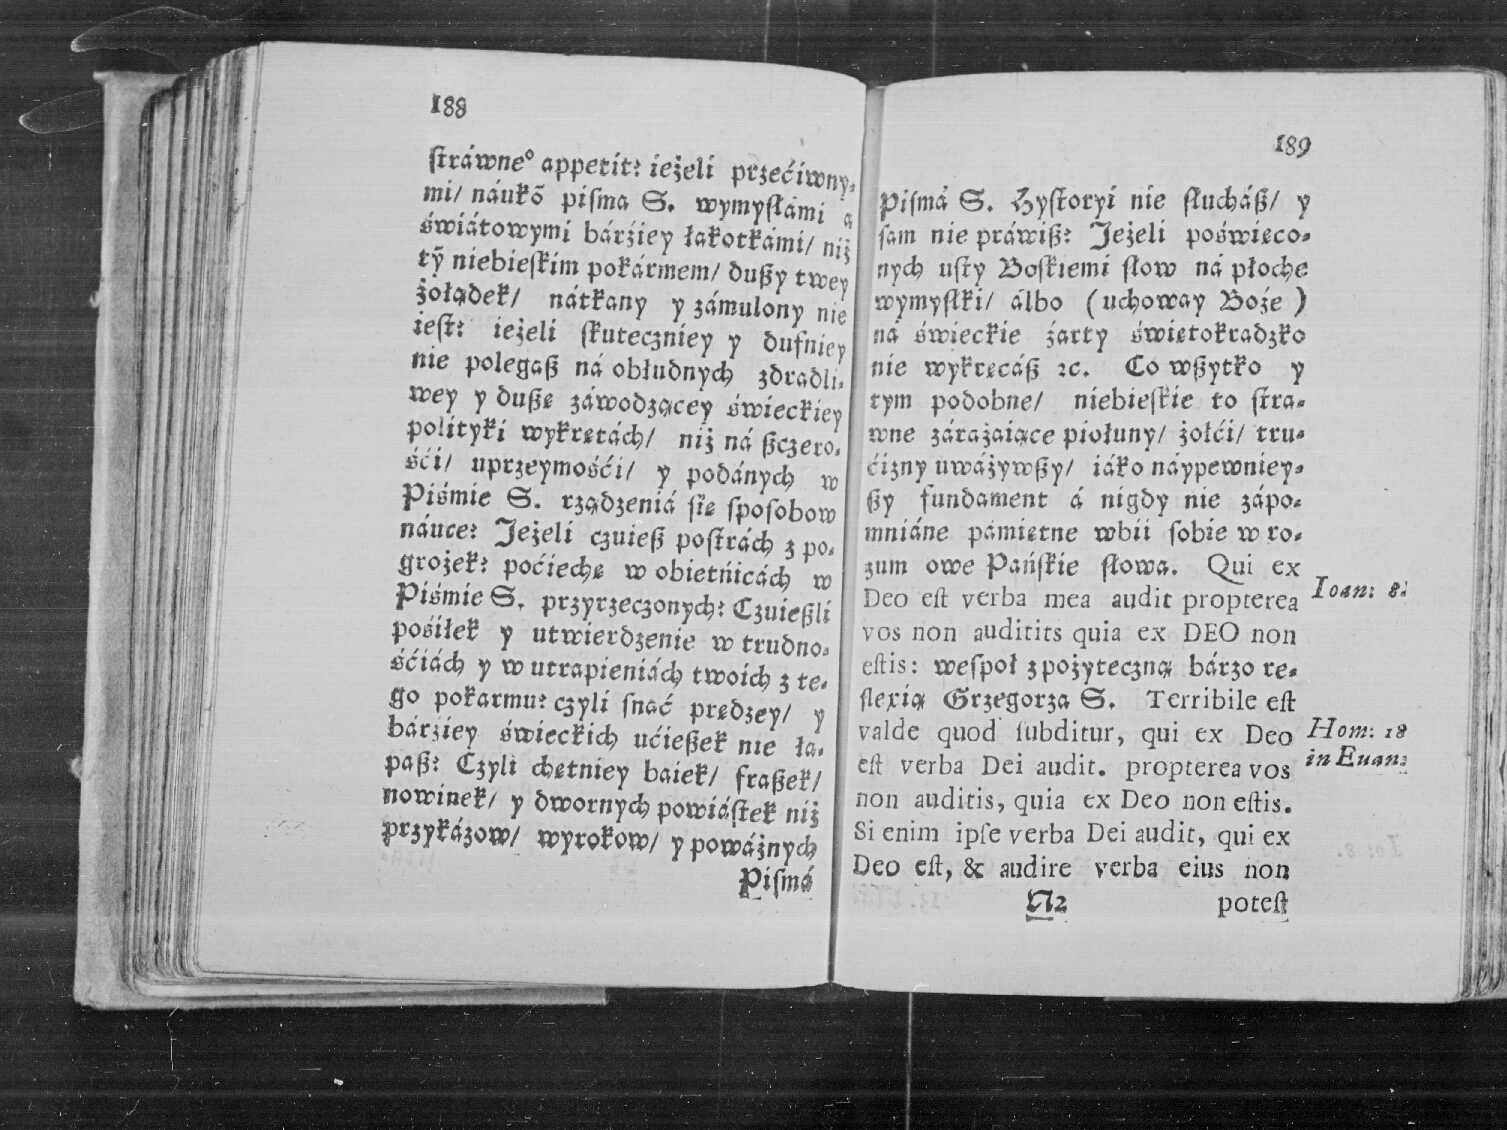 188
ſtráwne° appetit? ieżeli przećiwny-
mi/ náukõ piſma S. wymyſłámi á
świátowymi bárźiey łakotkámi/ niż
tỹ niebieſkim pokármem/ dußy twey
żołądek/ nátkany y zámulony nie
ieſt? ieżeli ſkuteczniey y dufniey
nie polegaß ná obłudnych zdradli-
wey y dußę záwodzącey świeckiey
polityki wykrętách/ niż ná ßczero-
śći/ uprzeymośći/ y podánych w
Piśmie S. rządzeniá ſię ſpoſobow
náuce? Jeżeli czuieß poſtrách z po-
grożek? poćiechę w obietnicách w
Piśmie S. przyrzeczonych? Czuießli
pośiłek y utwierdzenie w trudno-
śćiách y w utrapieniách twoich z te-
go pokarmu? czyli ſnać prędzey/ y
bárźiey świeckich ućießek nie ła-
paß? Czyli chętniey baiek/ fraßek/
nowinek/ y dwornych powiáſtek niż
przykázow/ wyrokow/ y poważnych
Piſmá
189
Piſmá S. Hyſtoryi nie ſłucháß/ y
ſam nie práwiß? Jeżeli poświęco-
nych uſty Boſkiemi ſłow ná płoche
wymyſłki/ álbo (uchoway Boże )
ná świeckie żarty świętokradzko
nie wykręcáß ꝛc. Co wßytko y
tym podobne/ niebieſkie to ſtra-
wne zárażaiące piołuny/ żołći/ tru-
ćizny uważywßy/ iáko náypewniey-
ßy fundament á nigdy nie zápo-
mniáne pámiętne wbii ſobie w ro-
zum owe Pańſkie ſłowa. Qui ex
Deo eſt verba mea audit propterea
Ioan: 8.
vos non auditits quia ex DEO non
eſtis: weſpoł z pożyteczną bárzo re-
flexią Grzegorza S. Terribile eſt
valde quod ſubditur, qui ex Deo
Hom: 18
eſt verba Dei audit. propterea vos
in Euan:
non auditis, quia ex Deo non eſtis.
Si enim ipſe verba Dei audit, qui ex
Deo eſt, & audire verba eius non
N2 poteſt